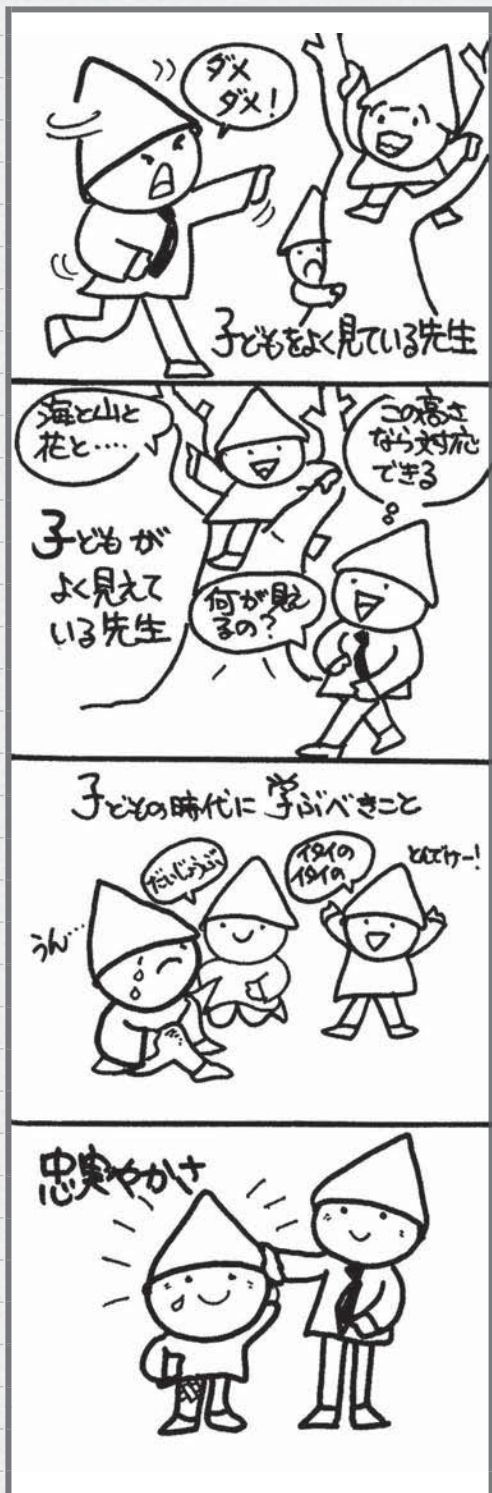 ダメ
ダメ!
子どもをよく見ている先生
海と山と
花と……
この高さ
なら対応
できる
子どもが
よく見えて
いる先生
何が見え
るの?
子どもの時代に学ぶべきこと
だいじょうぶ
イタイの
イタイの
とんでけー!
うん…
忠実やかさ